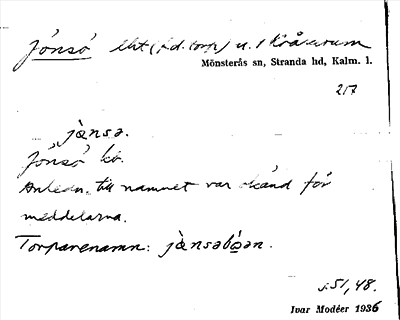 Jönsö lht (f.d. torp) u. 1 Kråkerum
Mönsterås sn, Stranda hd, Kalm. l.
217
jànsə.
"Jönsö" kb.
Anledn. till namnet var okänd för
meddelarna.
Torparenamn: jànsəbóən.
s. 51, 48.
Ivar Modéer 1936